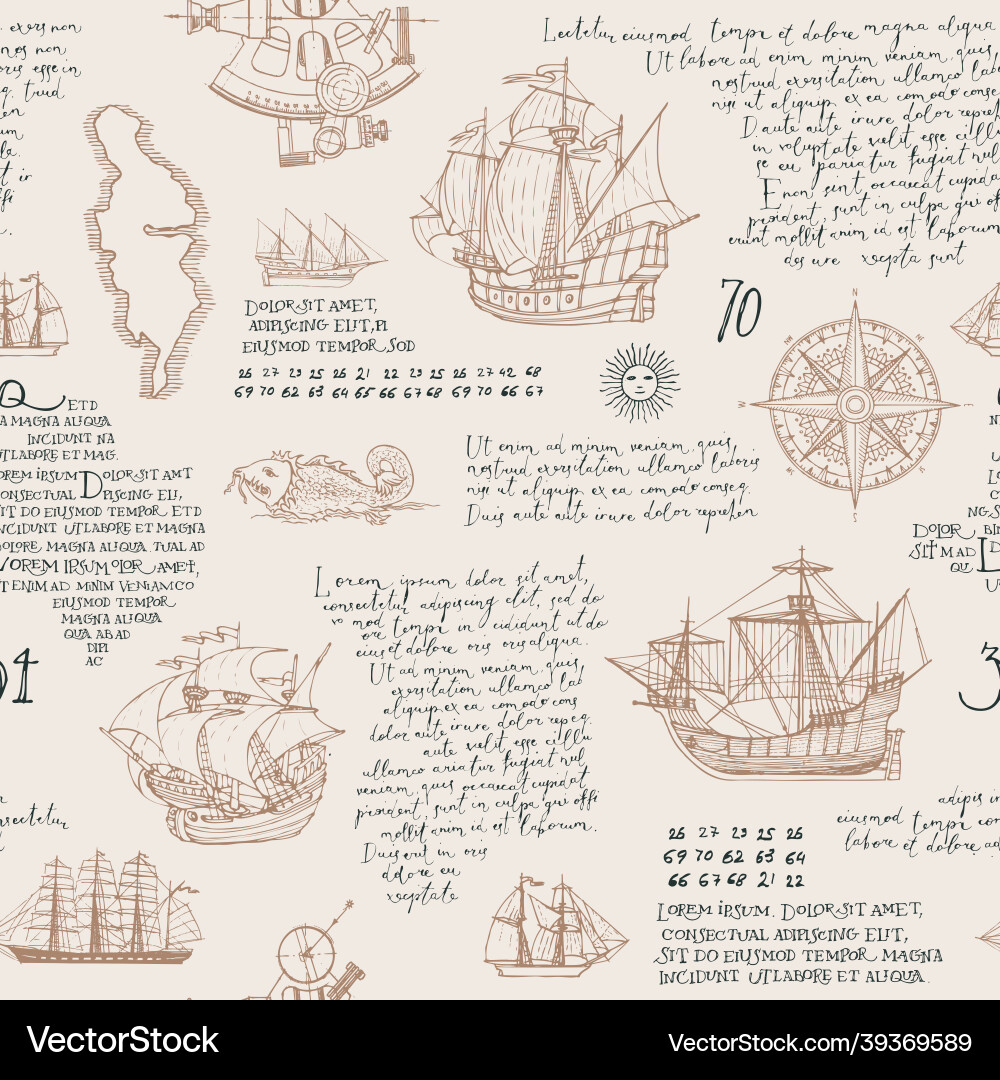 exers non
nos non
oris esse in
q. trud
Lectetur eiusmod tempi et dolore magna aliqua
Ut labore ad enim minim veniam, quis
nostrud exersitation ullamco lab
nisi ut aliquip ex ea comodo conse
Daute aute irure dolor repreh
in voluptate velit esse cillu
se eu pariatur fugiat nul
E non sint occaecat cupida
proident, sunt in culpa qui of
erunt mollit anim id est laborum
des ure xcepta sunt
70
N
S
DOLOR SIT AMET,
ADIPISCING ELIT, PI
EIUSMOD TEMPOR, SOD
26 27 23 25 26 21 22 23 25 26 27 42 68
69 70 62 63 64 65 66 67 68 69 70 66 67
Q ETD
A MAGNA ALIQUA
INCIDUNT NA
UTLABORE ET MAG.
OREM IPSUM DOLOR SIT AMT
CONSECTUAL PISCING ELI,
SIT DO EIUSMOD TEMPOR ETD
NCIDUNT UTLABORE ET MAGNA
DOLORE MAGNA ALIQUA. TUAL AD
LOREM IPSUM OLOR AMET,
T ENIM AD MINIM VENIAM CO
EIUSMOD TEMPOR
MAGNA ALIQUA
QUA AB AD
DIPI
AC
Ut enim ad minim veniam, quis,
nostrud exersitation ullamco laboris
nisi ut aliquip ex ea comodo conseq.
Duis aute aute irure dolor reprehen
DOLOR
SIT M AD
QU
Lorem ipsum dolor sit amet,
consectetur adipiscing elit, sed do
vo mod tempor in cididunt ut do
ore
eius et dolore oris oris aliqua.
Ut ad minim veniam, quis,
exersitation ullamco lab
aliquip ex ea comodo cons
dolor aute irure dolor repeq.
aute velit esse cillu
ullamco ariatur fugiat nul
veniam, quis occaecat cupidat
proident, sunt in culpa qui offi
mollit anim id est laborum.
Duis erit in oris
ddore eu
xceptate
nsectetur
adipis in
eiusmod tempi con
labore et dolore ad
26 27 23 25 26
69 70 62 63 64
66 67 68 21 22
LOREM IPSUM. DOLOR SIT AMET,
CONSECTUAL ADIPISCING ELIT,
SIT DO EIUSMOD TEMPOR MAGNA
INCIDUNT UTLABORE ET ALIQUA.
VectorStock
VectorStock.com/39369589